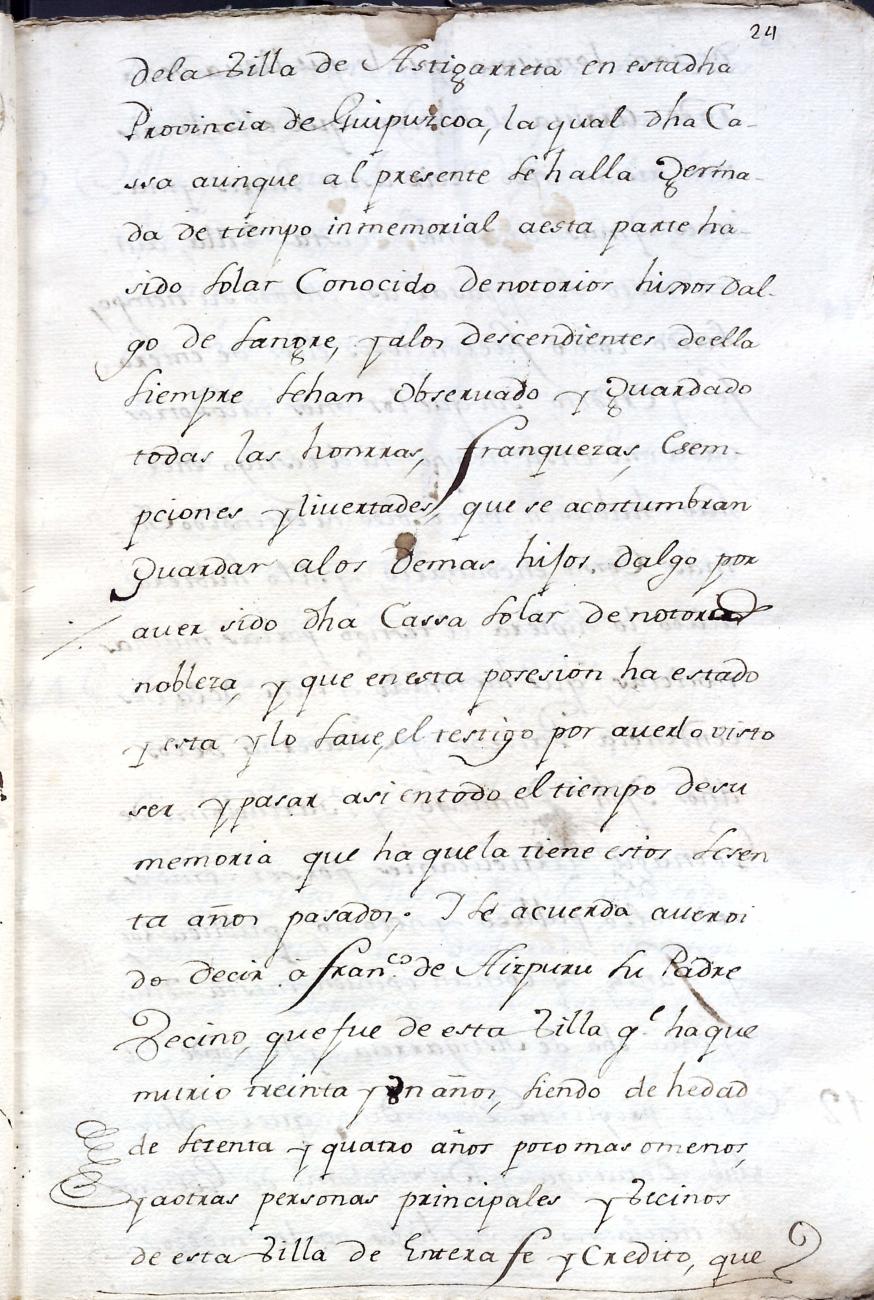 24
dela Villa de Astigarreta en estadha
Provincia de Guipuzcoa, la qual dha Ca-
ssa aunque al presente se halla Yerma-
da de tiempo inmemorial aesta parte ha-
sido solar Conocido denotorios hixos Dal-
go de sangre, y alos descendientes deella
siempre sehan Observado y Guardado
todas las honrras, franquezas, Esem-
pciones y livertades, que se acostumbran
Guardar alos Demas hijos dalgo por
aver sido dha Cassa solar de notoria
nobleza, y que enesta posesion ha estado
y esta y lo save, el testigo por averlo visto
ser y pasar asi entodo el tiempo desu
memoria que ha quela tiene estos sesen
ta años pasados; I se acuerda averoi
do decir a fran.co de Airpuru su Padre
Vecino, que fue de esta Villa q.e ha que
murio treinta y un años, siendo de hedad
de setenta y quatro años pocomas omenos,
yaotras personas principales y Vecinos
de esta Villa de Entera fe y Credito, que